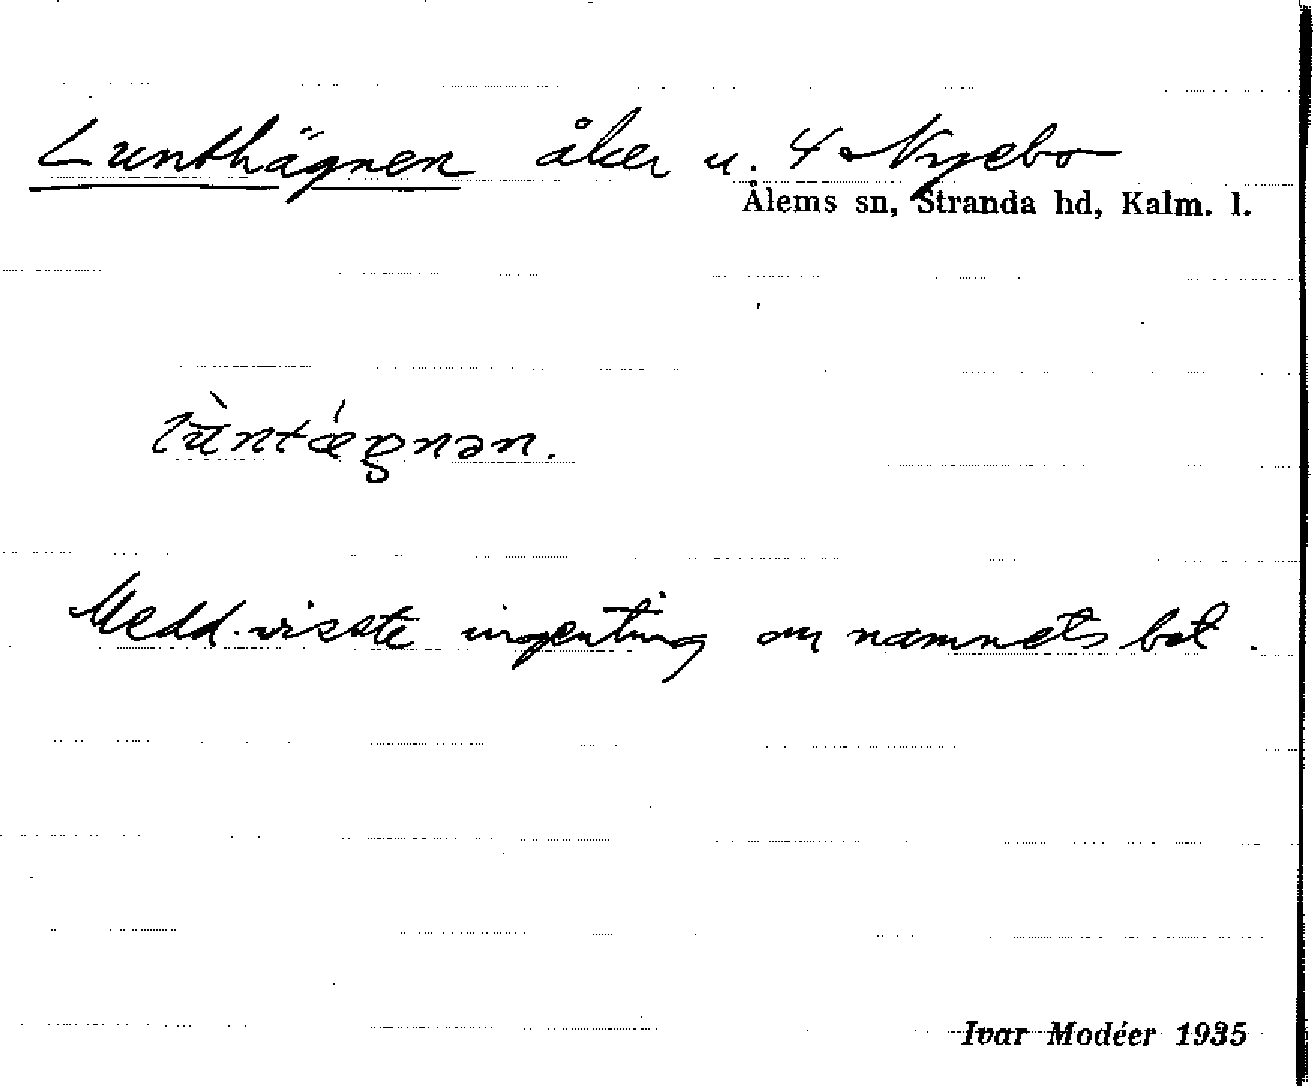 Lunthägnen åker u. 4 Nyebo
Ålems sn, Stranda hd, Kalm. l.
lùntǽgnən.
Medd. visste ingenting om namnets bet.
Ivar Modéer 1935